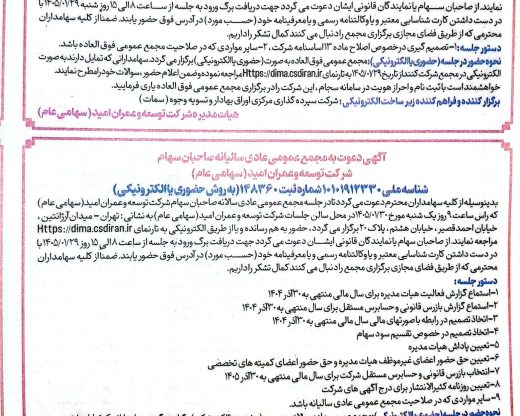 نمایند. از صاحبان سهام یا نمایندگان قانونی ایشان دعوت می گردد جهت دریافت برگ ورود به جلسه از ساعت ۸ الی ۱۵ روز شنبه ۱۴۰۵/۰۱/۲۹ با
در دست داشتن کارت شناسایی معتبر و یا وکالتنامه رسمی و یا معرفینامه خود (حسب مورد) در آدرس فوق حضور یابند. ضمنا از کلیه سهامداران
محترمی که از طریق فضای مجازی برگزاری مجمع را دنبال می کنند کمال تشکر را داریم.
دستور جلسه: ۱- تصمیم گیری در خصوص اصلاح ماده ۱۳ اساسنامه شرکت، ۲- سایر مواردی که در صلاحیت مجمع عمومی فوق العاده باشد.
نحوه حضور در جلسه (حضوری یا الکترونیکی): مجمع عمومی فوق العاده به صورت (حضوری یا الکترونیکی) برگزار می گردد. سهامدارانی که تمایل دارند به صورت
الکترونیکی در مجمع شرکت کنند از تاریخ ۱۴۰۵/۰۱/۲۹ به تارنمای Https://dima.csdiran.ir مراجعه نموده و ضمن اعلام حضور، سوالات خود را مطرح نمایند.
خواهشمند است با ثبت نام و احراز هویت در سامانه سجام، این شرکت را در برگزاری مجمع عمومی فوق العاده یاری فرمایید.
برگزار کننده و فراهم کننده زیر ساخت الکترونیکی: شرکت سپرده گذاری مرکزی اوراق بهادار و تسویه وجوه (سمات)
هیات مدیره شرکت توسعه و عمران امید (سهامی عام)
آگهی دعوت به مجمع عمومی عادی سالیانه صاحبان سهام
شرکت توسعه و عمران امید (سهامی عام)
شناسه ملی ۱۰۱۰۱۹۱۲۳۳۰ شماره ثبت ۱۴۸۳۶۰ (به روش حضوری یا الکترونیکی)
بدینوسیله از کلیه سهامداران محترم دعوت می گردد تا در جلسه مجمع عمومی عادی سالانه صاحبان سهام شرکت توسعه و عمران امید (سهامی عام)
که راس ساعت ۹ روز یک شنبه مورخ ۱۴۰۵/۰۱/۳۰ در محل سالن جلسات شرکت توسعه و عمران امید (سهامی عام) به نشانی: تهران - میدان آرژانتین،
خیابان احمد قصیر، خیابان هشتم، پلاک ۲۰ برگزار می گردد، حضور به هم رسانده و یا از طریق الکترونیکی به تارنمای Https://dima.csdiran.ir
مراجعه نمایند. از صاحبان سهام یا نمایندگان قانونی ایشان دعوت می گردد جهت دریافت برگ ورود به جلسه از ساعت ۸ الی ۱۵ روز ۱۴۰۵/۰۱/۲۹ با
در دست داشتن کارت شناسایی معتبر و یا وکالتنامه رسمی و یا معرفینامه خود (حسب مورد) در آدرس فوق حضور یابند. ضمنا از کلیه سهامداران
محترمی که از طریق فضای مجازی برگزاری مجمع را دنبال می کنند کمال تشکر را داریم.
دستور جلسه:
۱- استماع گزارش فعالیت هیات مدیره برای سال مالی منتهی به ۳۰ آذر ۱۴۰۴
۲- استماع گزارش بازرس قانونی و حسابرس مستقل برای سال مالی منتهی به ۳۰ آذر ۱۴۰۴
۳- اتخاذ تصمیم در رابطه با صورتهای مالی سال مالی منتهی به ۳۰ آذر ۱۴۰۴
۴- اتخاذ تصمیم در خصوص تقسیم سود سهام
۵- تعیین پاداش هیات مدیره
۶- تعیین حق حضور اعضای غیر موظف هیات مدیره و حق حضور اعضای کمیته های تخصصی
۷- انتخاب بازرس قانونی و حسابرس مستقل شرکت برای سال مالی منتهی به ۳۰ آذر ۱۴۰۵
۸- تعیین روزنامه کثیرالانتشار برای درج آگهی های شرکت
۹- سایر مواردی که در صلاحیت مجمع عمومی عادی سالیانه باشد.
نحوه حضور در جلسه (حضوری یا الکترونیکی):